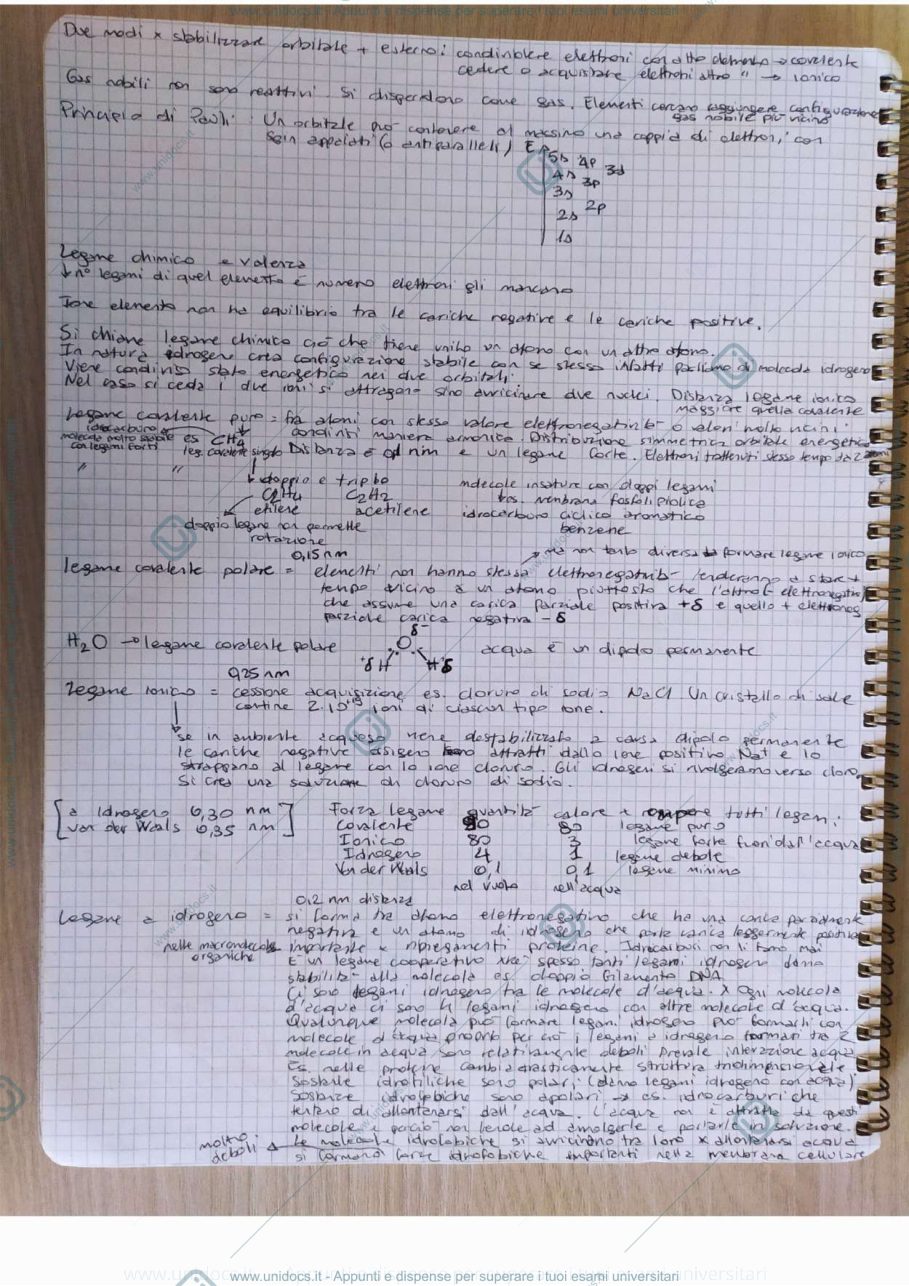 www.unidocs.it - Appunti e dispense per superare i tuoi esami universitari
Due modi x stabilizzare orbitale + esterno: condividere elettroni con altro elemento → covalente
cedere o acquistare elettroni altro " → ionico
Gas nobili non sono reattivi. Si disperdono come gas. Elementi cercano raggiungere configurazione
gas nobile più vicino
Principio di Pauli: Un orbitale può contenere al massimo una coppia di elettroni con
spin appaiati (o antiparalleli) E
5s 4p 3d
4s 3p
3s
2s 2p
1s
Legame chimico e valenza
↓ n° legami di quel elemento è numero elettroni gli mancano
Ione elemento non ha equilibrio tra le cariche negative e le cariche positive.
Si chiama legame chimico ciò che tiene unito un atomo con un altro atomo.
In natura idrogeno crea configurazione stabile con se stesso infatti parliamo di molecola idrogeno
Viene condiviso stato energetico nei due orbitali.
Nel caso si ceda i due ioni si attraggono sino avvicinare due nuclei. Distanza legame ionico
maggiore quella covalente
Legame covalente puro = fra atomi con stesso valore elettronegatività o valori molto vicini.
idrocarburo
molecola molto stabile
con legami forti
es CH4
condivisi maniera armonica. Distribuzione simmetrica orbitale energetico
leg. covalente singolo Distanza è nm e un legame forte. Elettroni trattenuti stesso tempo da 2 atomi
" " doppio e triplo
C2H4 C2H2
etilene acetilene
molecole insature con doppi legami
es. membrana fosfolipidica
idrocarburo ciclico aromatico
benzene
doppio legame non permette
rotazione
0,15 nm
ma non tanto diversa formare legame ionico
legame covalente polare = elementi non hanno stessa elettronegatività tenderanno a stare +
tempo vicino a un atomo piuttosto che l'altro
che assume una carica parziale positiva +δ e quello + elettroneg
parziale carica negativa -δ
H2O → legame covalente polare
δ-
O
+δ H H δ
acqua è un dipolo permanente
0,25 nm
Legame ionico = cessione acquisizione es. cloruro di sodio NaCl. Un cristallo di sale
contine ioni di ciascun tipo ione.
se in ambiente acquoso viene destabilizzato a causa dipolo permanente
le cariche negative ossigeno attratti dallo ione positivo Na+ e lo
strappano al legame con lo ione cloruro. Gli idrogeni si rivolgeranno verso cloro
Si crea una soluzione di cloruro di sodio.
[a Idrogeno 0,30 nm
Van der Waals 0,35 nm]
Forza legame quantità calore x rompere tutti legami:
Covalente 90 80 legame puro
Ionico 80 3 legame forte fuori dall'acqua
Idrogeno 4 1 legame debole
Van der Waals 0,1 0,1 legame minimo
nel vuoto nell'acqua
0,2 nm distanza
Legame a idrogeno = si forma tra atomo elettronegativo che ha una carica parzialmente
negativa e un atomo di idrogeno che porta carica leggermente positiva
nelle macromolecole
organiche
importante x ripiegamenti proteine. Idrocarburi non li fanno mai
E' un legame cooperativo xké spesso tanti legami idrogeno danno
stabilità alla molecola es doppio filamento DNA.
Ci sono legami idrogeno tra le molecole d'acqua. x Ogni molecola
d'acqua ci sono 4 legami idrogeno con altre molecole d'acqua.
Qualunque molecola può formare legami idrogeno può formarli con
molecole d'acqua proprio per ciò i legami a idrogeno formati tra 2
molecole in acqua sono relativamente deboli prevale interazione acqua
Es. nelle proteine cambia drasticamente struttura tridimensionale
Sostanze idrofiliche sono polari (danno legami idrogeno con acqua)
Sostanze idrofobiche sono apolari → es. idrocarburi che
tentano di allontanarsi dall'acqua. L'acqua non è attratta da questi
molecole e perciò non tende ad avvolgerle e portarle in soluzione.
molto
deboli
Le molecole idrofobiche si avvicinano tra loro x allontanarsi acqua
si formano forze idrofobiche importanti nella membrana cellulare
www.unidocs.it - Appunti e dispense per superare i tuoi esami universitari